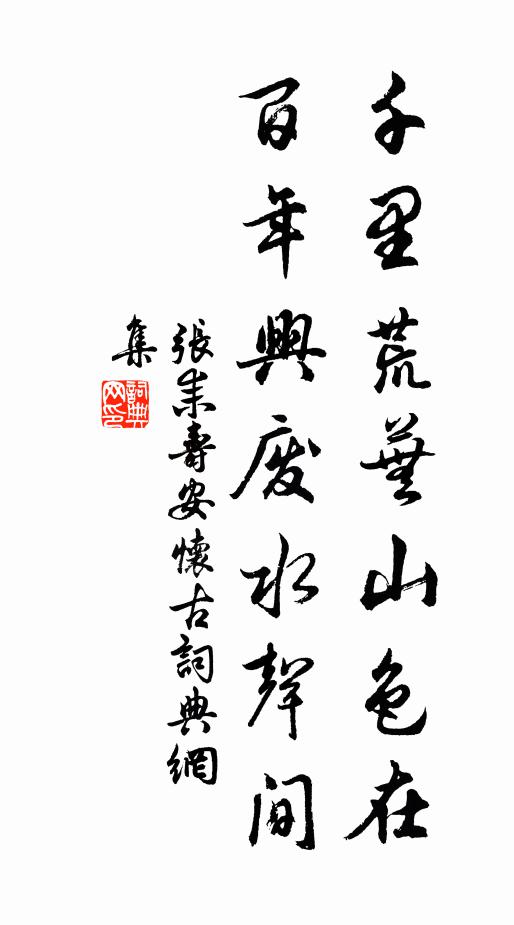 千里荒蕪山色在
百年興廢水聲間
張耒壽安懷古詞典網
集
詞典網印